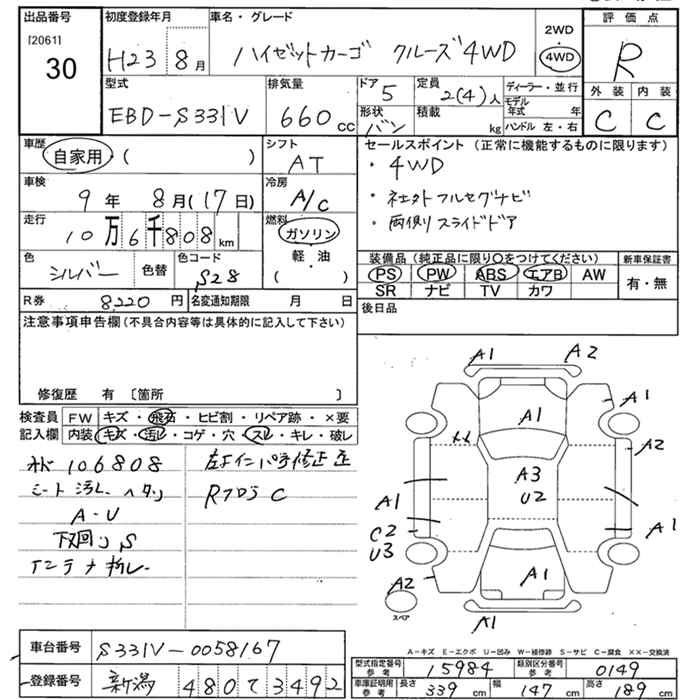 出品番号
[2061]
30
初度登録年月
H23 8月
車名・グレード
ハイゼットカーゴ クルーズ 4WD
2WD
4WD
評価点
R
外装 内装
C C
型式
EBD-S331V
排気量
660 cc
ドア 5
形状 バン
定員 2(4)人
積載 kg
ディーラー・並行
モデル年式 年
ハンドル 左・右
車歴
自家用 ( )
シフト
AT
車検
9年 8月(17日)
冷房
A/C
走行
10万6千808km
燃料
ガソリン
軽油
( )
色
シルバー
色替
色コード
S28
R券 8220円
名変通知期限 月 日
セールスポイント(正常に機能するものに限ります)
・4WD
・ネェクト フルセグナビ
・両側スライドドア
装備品(純正品に限り○をつけてください)
PS PW ABS エアB AW
SR ナビ TV カワ
新車保証書
有・無
後日品
注意事項申告欄(不具合内容等は具体的に記入して下さい)
修復歴 有 〔箇所 〕
検査員記入欄
FW キズ・飛石・ヒビ割・リペア跡・×要
内装 キズ・汚れ・コゲ・穴・スレ・キレ・破レ
106808
シート汚レ ヘタリ
A-U
下回りS
アンテナ折レ
修正
C
A1 A2
A1
A1
A2
A3
U2
A1
A1
C2
U3
A2
A1
A1
スペア
A-キズ E-エクボ U-凹み W-補修跡 S-サビ C-腐食 XX-交換済
車台番号 S331V-0058167
登録番号 新潟 480 て 3492
型式指定番号 参考 15984
類別区分番号 参考 0149
車庫証明用 参考 長さ 339cm 幅 147cm 高さ 189cm